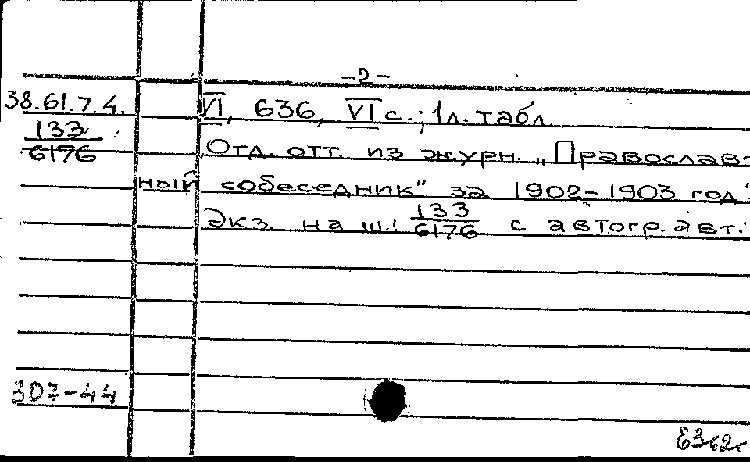 -2-
38.61.7.4. VI, 636, VI с.; 1 л. табл.
133
6176
Отд. отт. из журн. „Православ-
ный собеседник" за 1902-1903 год.
Экз. на ш. 133/6176 с автогр. авт.
307-44